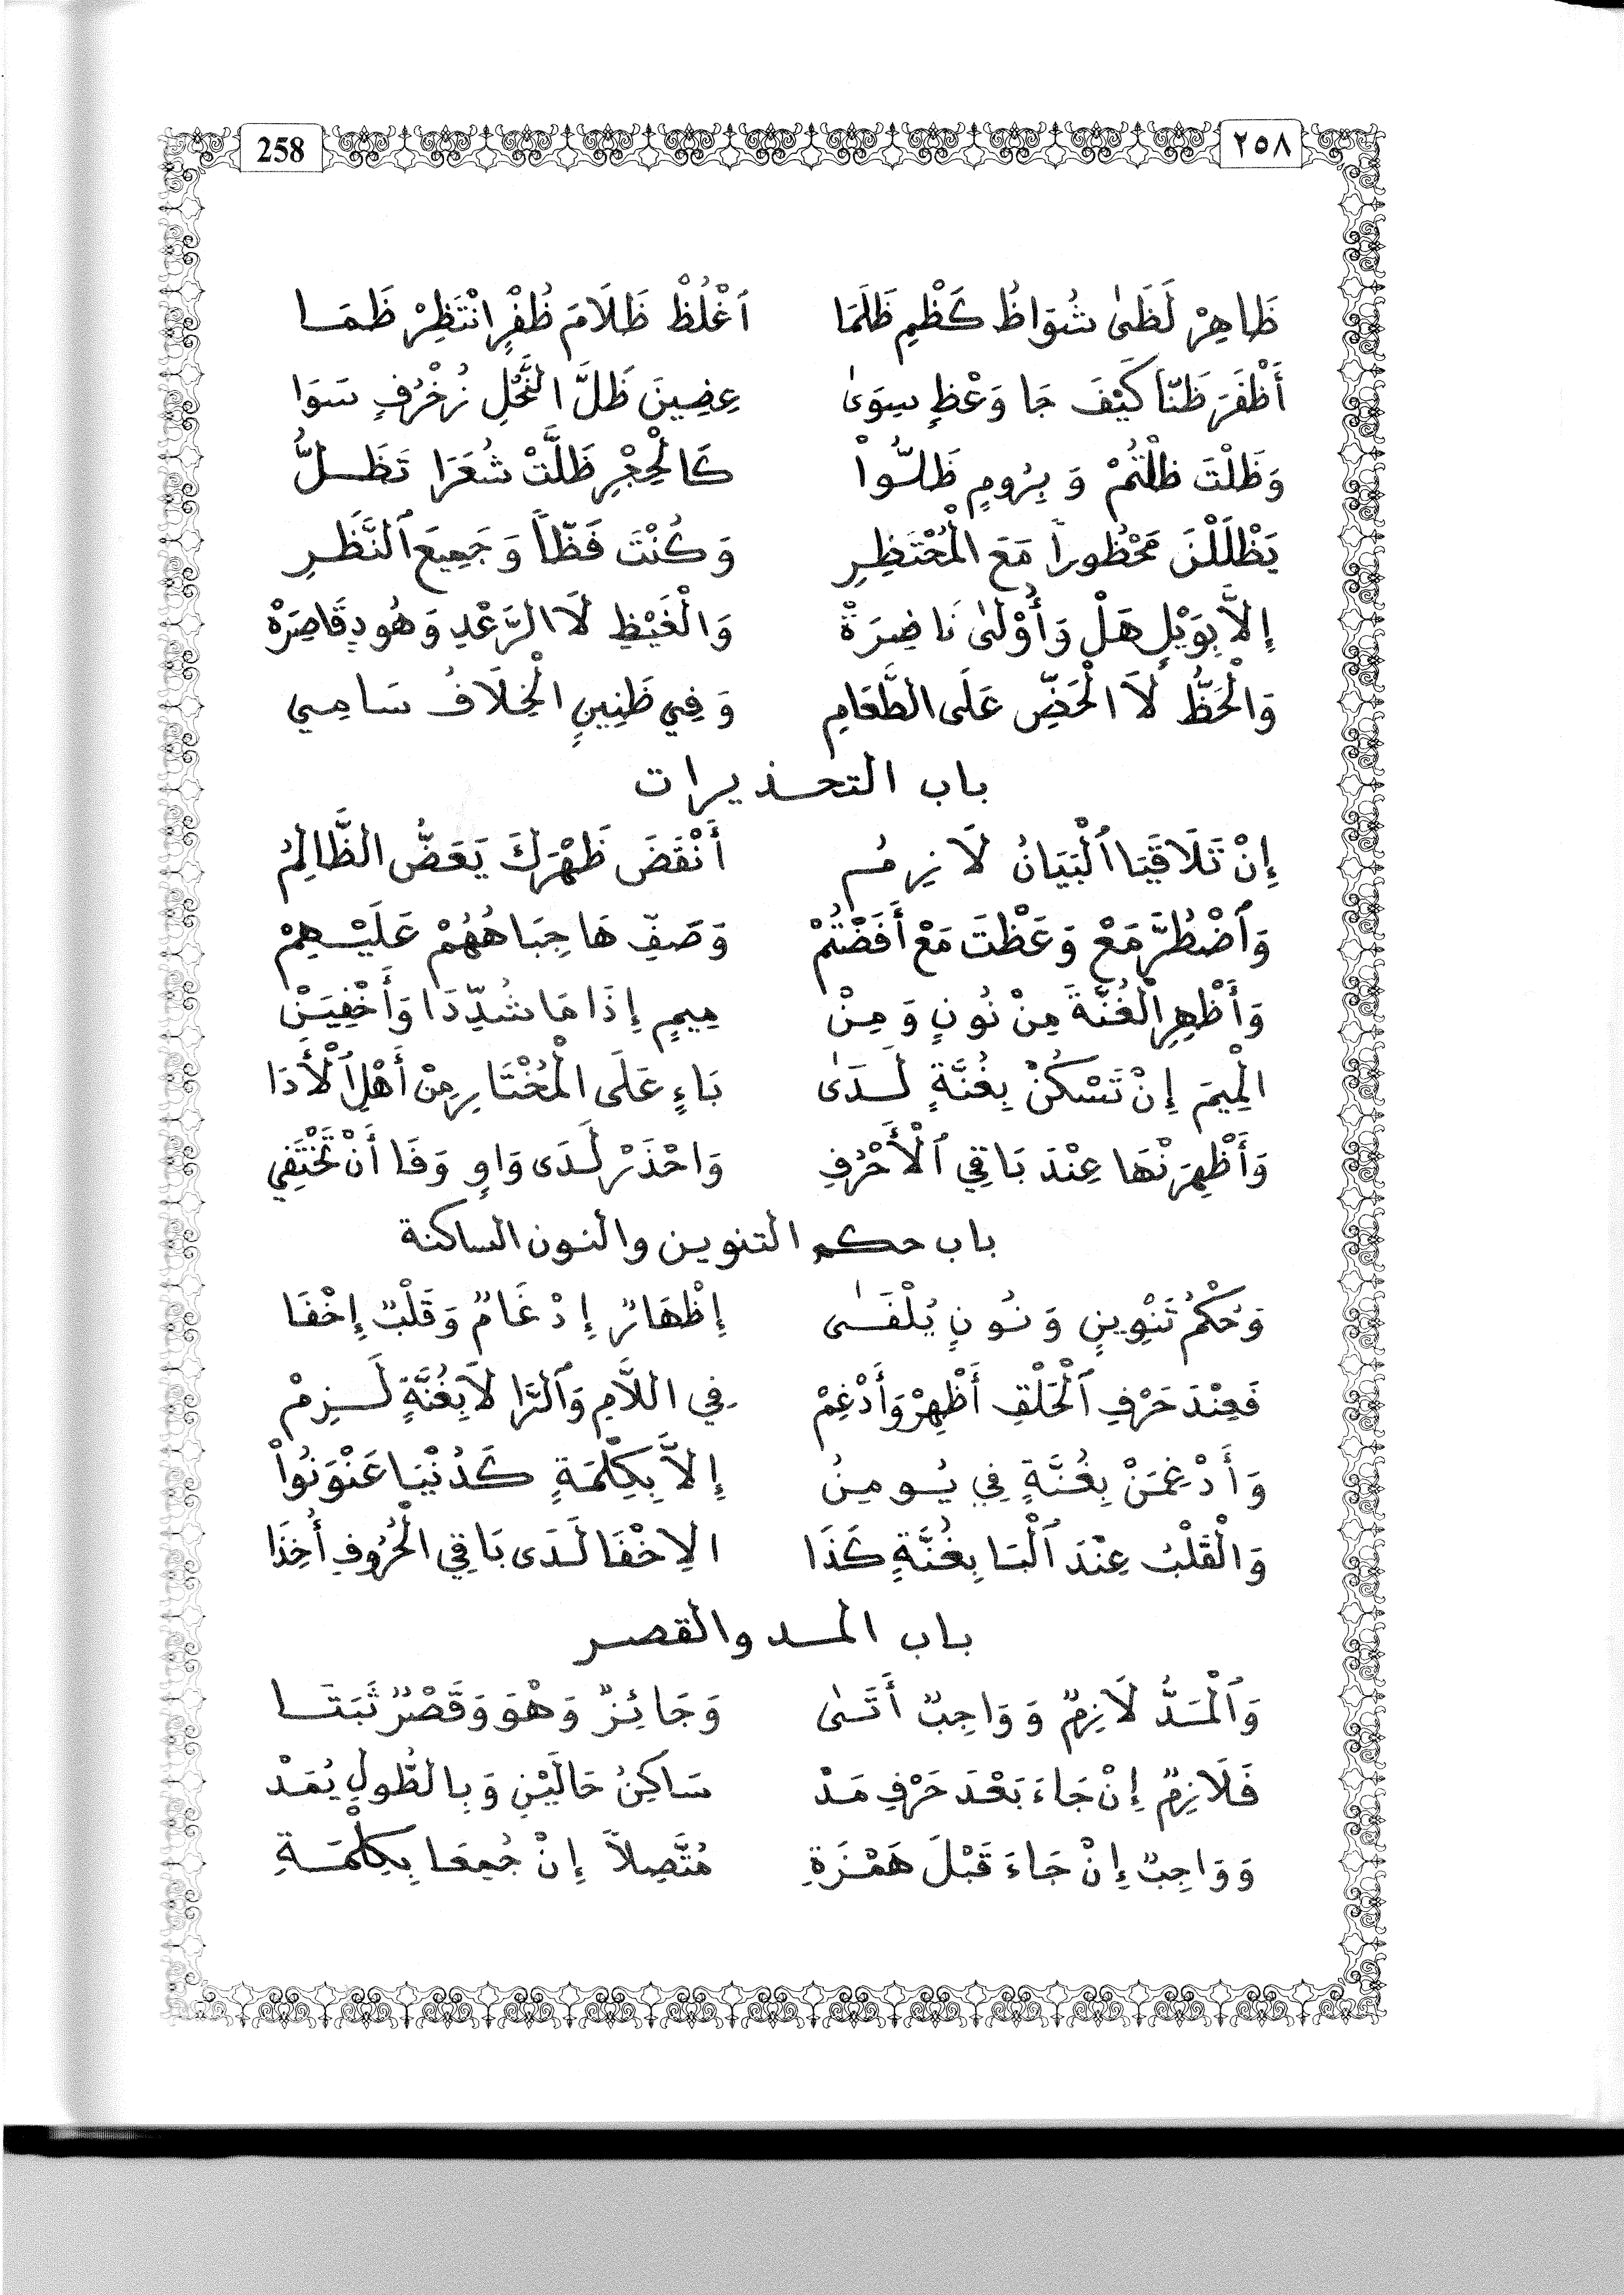 258 ٢٥٨
ظَاهِرْ لَظَىٰ شُوَاظُ كَظْمٍ ظَلَمَا اُغْلُظْ ظَلَامَ ظُفْرٍ انْتَظِرْ ظَمَا
أَظْفَرَ ظَنّاً كَيْفَ جَا وَعْظٍ سِوَىٰ عِضِينَ ظَلَّ النَّحْلِ زُخْرُفٍ سَوَا
وَظَلْتَ ظَلْتُمْ وَبِرُومٍ ظَلُّواْ كَالْحِجْرِ ظَلَّتْ شُعَرَا تَظَلُّ
يَظْلَلْنَ مَحْظُوراً مَعَ الْمُحْتَظِرِ وَكُنْتَ فَظّاً وَجَمِيعَ ٱلنَّظَرِ
إِلاَّ بِوَيْلٍ هَلْ وَأُوْلَىٰ نَاضِرَةْ وَالْغَيْظِ لَا الرَّعْدِ وَهُودٍ قَاصِرَةْ
وَالْحَظُّ لَا الْحَضِّ عَلَى الطَّعَامِ وَفِي ظَنِينٍ الْخِلَافُ سَامِي
باب التحذيرات
إِنْ تَلَاقَيَا ٱلْبَيَانُ لَازِمُ أَنْقَضَ ظَهْرَكَ يَعَضُّ الظَّالِمُ
وَٱضْطُرَّ مَعْ وَعَظْتَ مَعْ أَفَضْتُمْ وَصَفِّ هَا جِبَاهُهُمْ عَلَيْهِمْ
وَأَظْهِرِ الْغُنَّةَ مِنْ نُونٍ وَمِنْ مِيمٍ إِذَا مَا شُدِّدَا وَأَخْفِيَنْ
الْمِيمَ إِنْ تَسْكُنْ بِغُنَّةٍ لَدَىٰ بَاءٍ عَلَى الْمُخْتَارِ مِنْ أَهْلِ ٱلْأَدَا
وَأَظْهِرَنْهَا عِنْدَ بَاقِي ٱلْأَحْرُفِ وَاحْذَرْ لَدَى وَاوٍ وَفَا أَنْ تَخْتَفِي
باب حكم التنوين والنون الساكنة
وَحُكْمُ تَنْوِينٍ وَنُونٍ يُلْفَىٰ إِظْهَارٌ إِدْغَامٌ وَقَلْبٌ إِخْفَا
فَعِنْدَ حَرْفِ ٱلْحَلْقِ أَظْهِرْ وَأَدْغِمْ فِي اللاَّمِ وَٱلرَّا لَا بِغُنَّةٍ لَزِمْ
وَأَدْغِمَنْ بِغُنَّةٍ فِي يُومِنُ إِلاَّ بِكِلْمَةٍ كَدُنْيَا عَنْوَنُواْ
وَالْقَلْبُ عِنْدَ ٱلْبَا بِغُنَّةٍ كَذَا الِاخْفَا لَدَى بَاقِي الْحُرُوفِ أُخِذَا
باب المد والقصر
وَٱلْمَدُّ لَازِمٌ وَوَاجِبٌ أَتَىٰ وَجَائِزٌ وَهْوَ وَقَصْرٌ ثَبَتَا
فَلَازِمٌ إِنْ جَاءَ بَعْدَ حَرْفِ مَدْ سَاكِنُ حَالَيْنِ وَبِالطُّولِ يُمَدْ
وَوَاجِبٌ إِنْ جَاءَ قَبْلَ هَمْزَةِ مُتَّصِلاً إِنْ جُمِعَا بِكِلْمَةِ